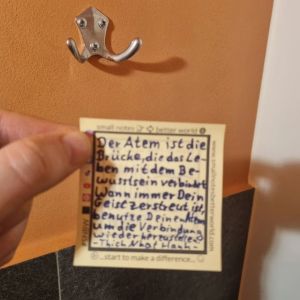 small notes better world
Der Atem ist die
Brücke, die das Le-
ben mit dem Be-
wusstsein verbindet
Wann immer Dein
Geist zerstreut ist,
benutze Deinen Atem
um die Verbindung
wiederherzustellen
-Thich Nhat Hanh-
...start to make a difference...